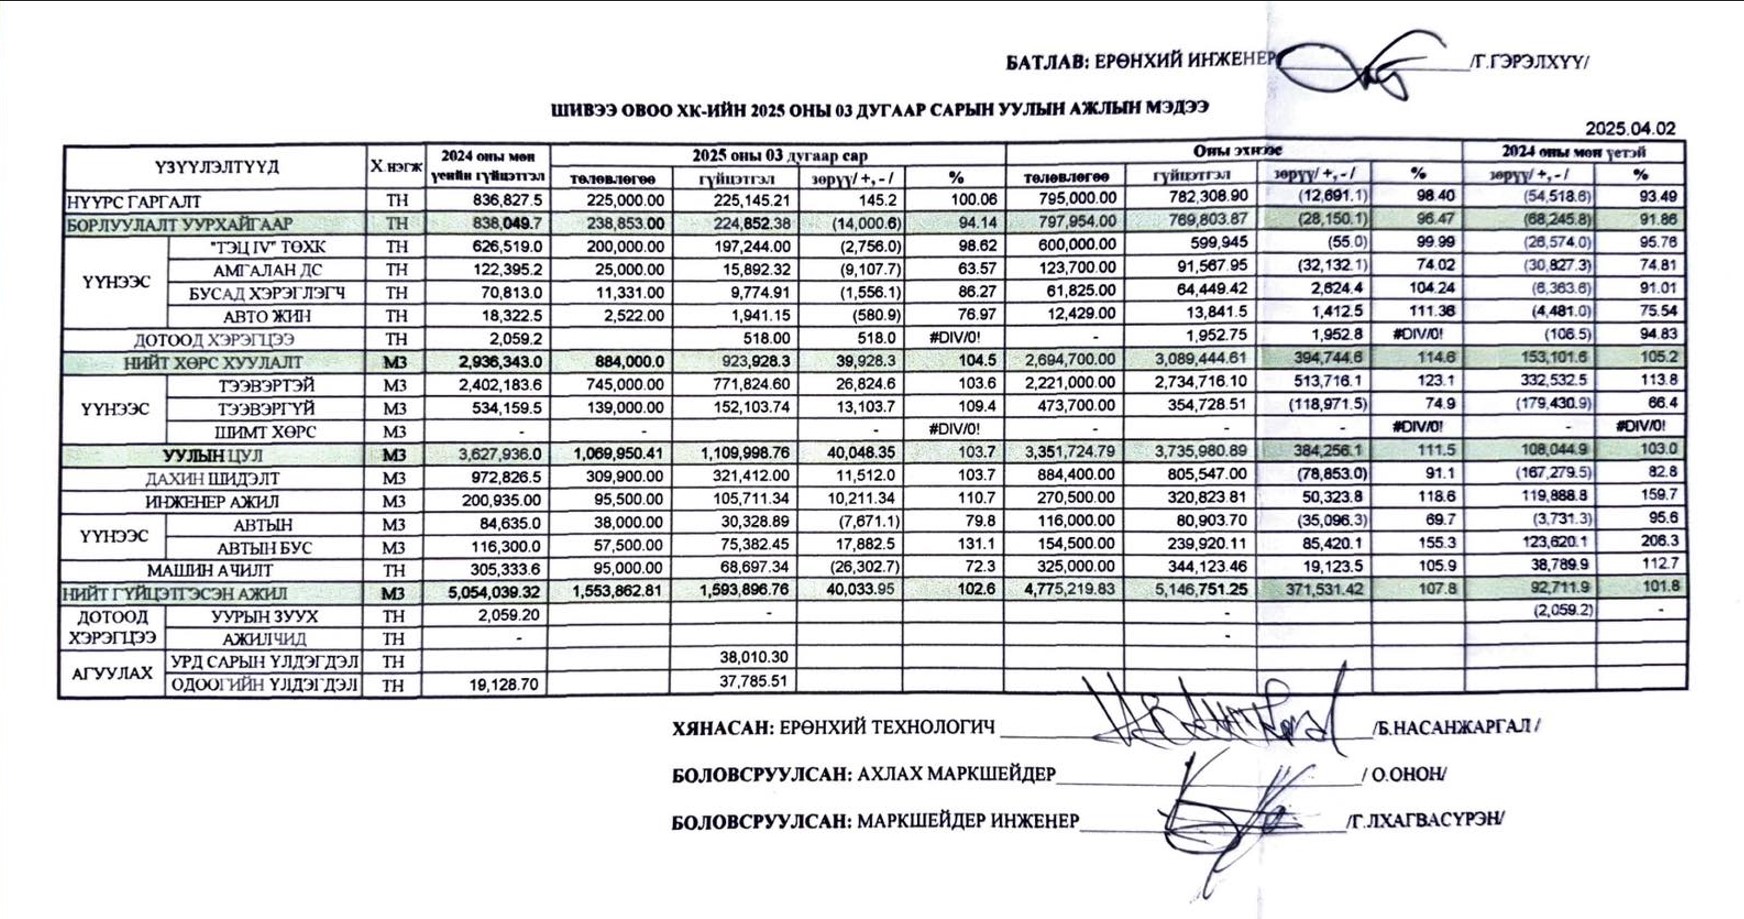 БАТЛАВ: ЕРӨНХИЙ ИНЖЕНЕР /Г.ГЭРЭЛХҮҮ/
ШИВЭЭ ОВОО ХК-ИЙН 2025 ОНЫ 03 ДУГААР САРЫН УУЛЫН АЖЛЫН МЭДЭЭ
2025.04.02
ҮЗҮҮЛЭЛТҮҮД Х.нэгж 2024 оны мөн үеийн гүйцэтгэл 2025 оны 03 дугаар сар Оны эхнээс 2024 оны мөн үетэй
төлөвлөгөө гүйцэтгэл зөрүү/ +, - / % төлөвлөгөө гүйцэтгэл зөрүү/ +, - / % зөрүү/ +, - / %
НҮҮРС ГАРГАЛТ ТН 836,827.5 225,000.00 225,145.21 145.2 100.06 795,000.00 782,308.90 (12,691.1) 98.40 (54,518.6) 93.49
БОРЛУУЛАЛТ УУРХАЙГААР ТН 838,049.7 238,853.00 224,852.38 (14,000.6) 94.14 797,954.00 769,803.87 (28,150.1) 96.47 (68,245.8) 91.86
ҮҮНЭЭС "ТЭЦ IV" ТӨХК ТН 626,519.0 200,000.00 197,244.00 (2,756.0) 98.62 600,000.00 599,945 (55.0) 99.99 (26,574.0) 95.76
АМГАЛАН ДС ТН 122,395.2 25,000.00 15,892.32 (9,107.7) 63.57 123,700.00 91,567.95 (32,132.1) 74.02 (30,827.3) 74.81
БУСАД ХЭРЭГЛЭГЧ ТН 70,813.0 11,331.00 9,774.91 (1,556.1) 86.27 61,825.00 64,449.42 2,624.4 104.24 (6,363.6) 91.01
АВТО ЖИН ТН 18,322.5 2,522.00 1,941.15 (580.9) 76.97 12,429.00 13,841.5 1,412.5 111.36 (4,481.0) 75.54
ДОТООД ХЭРЭГЦЭЭ ТН 2,059.2 518.00 518.0 #DIV/0! - 1,952.75 1,952.8 #DIV/0! (106.5) 94.83
НИЙТ ХӨРС ХУУЛАЛТ М3 2,936,343.0 884,000.0 923,928.3 39,928.3 104.5 2,694,700.00 3,089,444.61 394,744.6 114.6 153,101.6 105.2
ҮҮНЭЭС ТЭЭВЭРТЭЙ М3 2,402,183.6 745,000.00 771,824.60 26,824.6 103.6 2,221,000.00 2,734,716.10 513,716.1 123.1 332,532.5 113.8
ТЭЭВЭРГҮЙ М3 534,159.5 139,000.00 152,103.74 13,103.7 109.4 473,700.00 354,728.51 (118,971.5) 74.9 (179,430.9) 66.4
ШИМТ ХӨРС М3 - - - #DIV/0! - - - #DIV/0! - #DIV/0!
УУЛЫН ЦУЛ М3 3,627,936.0 1,069,950.41 1,109,998.76 40,048.35 103.7 3,351,724.79 3,735,980.89 384,256.1 111.5 108,044.9 103.0
ДАХИН ШИДЭЛТ М3 972,826.5 309,900.00 321,412.00 11,512.0 103.7 884,400.00 805,547.00 (78,853.0) 91.1 (167,279.5) 82.8
ИНЖЕНЕР АЖИЛ М3 200,935.00 95,500.00 105,711.34 10,211.34 110.7 270,500.00 320,823.81 50,323.8 118.6 119,888.8 159.7
ҮҮНЭЭС АВТЫН М3 84,635.0 38,000.00 30,328.89 (7,671.1) 79.8 116,000.00 80,903.70 (35,096.3) 69.7 (3,731.3) 95.6
АВТЫН БУС М3 116,300.0 57,500.00 75,382.45 17,882.5 131.1 154,500.00 239,920.11 85,420.1 155.3 123,620.1 206.3
МАШИН АЧИЛТ ТН 305,333.6 95,000.00 68,697.34 (26,302.7) 72.3 325,000.00 344,123.46 19,123.5 105.9 38,789.9 112.7
НИЙТ ГҮЙЦЭТГЭСЭН АЖИЛ М3 5,054,039.32 1,553,862.81 1,593,896.76 40,033.95 102.6 4,775,219.83 5,146,751.25 371,531.42 107.8 92,711.9 101.8
ДОТООД ХЭРЭГЦЭЭ УУРЫН ЗУУХ ТН 2,059.20 - - (2,059.2) -
АЖИЛЧИД ТН - -
АГУУЛАХ УРД САРЫН ҮЛДЭГДЭЛ ТН 38,010.30
ОДООГИЙН ҮЛДЭГДЭЛ ТН 19,128.70 37,785.51
ХЯНАСАН: ЕРӨНХИЙ ТЕХНОЛОГИЧ /Б.НАСАНЖАРГАЛ /
БОЛОВСРУУЛСАН: АХЛАХ МАРКШЕЙДЕР / О.ОНОН/
БОЛОВСРУУЛСАН: МАРКШЕЙДЕР ИНЖЕНЕР /Г.ЛХАГВАСҮРЭН/